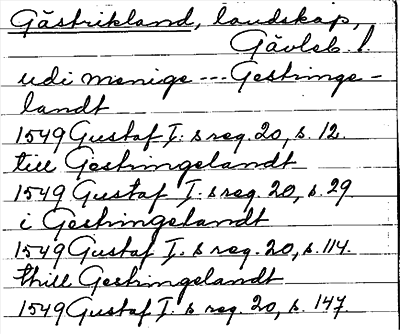 Gästrikland, landskap,
Gävleb. l.
udi menige --- Gestringe-
landt
1549 Gustaf I:s reg. 20, s. 12
till Gestringelandt
1549 Gustaf I:s reg. 20, s. 29
i Gestringelandt
1549 Gustaf I:s reg. 20, s. 114.
thill Gestringelandt
1549 Gustaf I:s reg. 20, s. 147